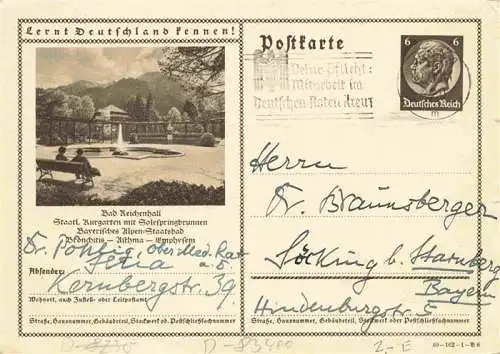 Lernt Deutschland kennen!
Bad Reichenhall
Staatl. Kurgarten mit Solespringbrunnen
Bayerisches Alpen-Staatsbad
Bronchitis – Asthma – Emphysem
Dr. Pohlig, Ober Med. Rat
Absender:
Jena
Kernbergstr. 39
Wohnort, auch Zustell- oder Leitpostamt
Straße, Hausnummer, Gebäudeteil, Stockwerk od. Postschließfachnummer
Postkarte
6 6
Deutsches Reich
Deine Pflicht:
Mitarbeit im
Deutschen Roten Kreuz
Herrn
Dr. Braunsberger
Söcking bei Starnberg
Bayern
Hindenburgstr. 5
Straße, Hausnummer, Gebäudeteil, Stockwerk oder Postschließfachnummer
D-83400
2.-E